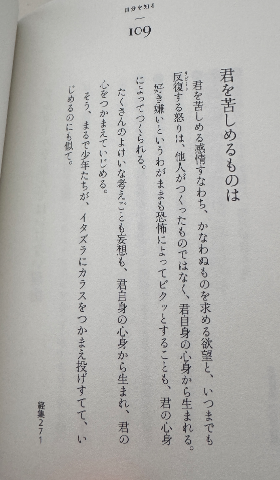 自分を知る
109
君を苦しめるものは
君を苦しめる感情すなわち、かなわぬものを求める欲望と、いつまでも
反復する怒りは、他人がつくったものではなく、君自身の心身から生まれる。
好き嫌いというわがままも恐怖によってビクッとすることも、君の心身
によってつくられる。
たくさんのよけいな考えごとも妄想も、君自身の心身から生まれ、君の
心をつかまえていじめる。
そう、まるで少年たちが、イタズラにカラスをつかまえ投げすてて、い
じめるのにも似て。
経集271